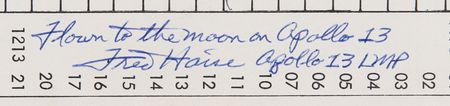 Flown to the moon on Apollo 13
Fred Haise Apollo 13 LMP
1213 21 20 17 16 15 14 13 12 11 10 07 06 05 04 03 02